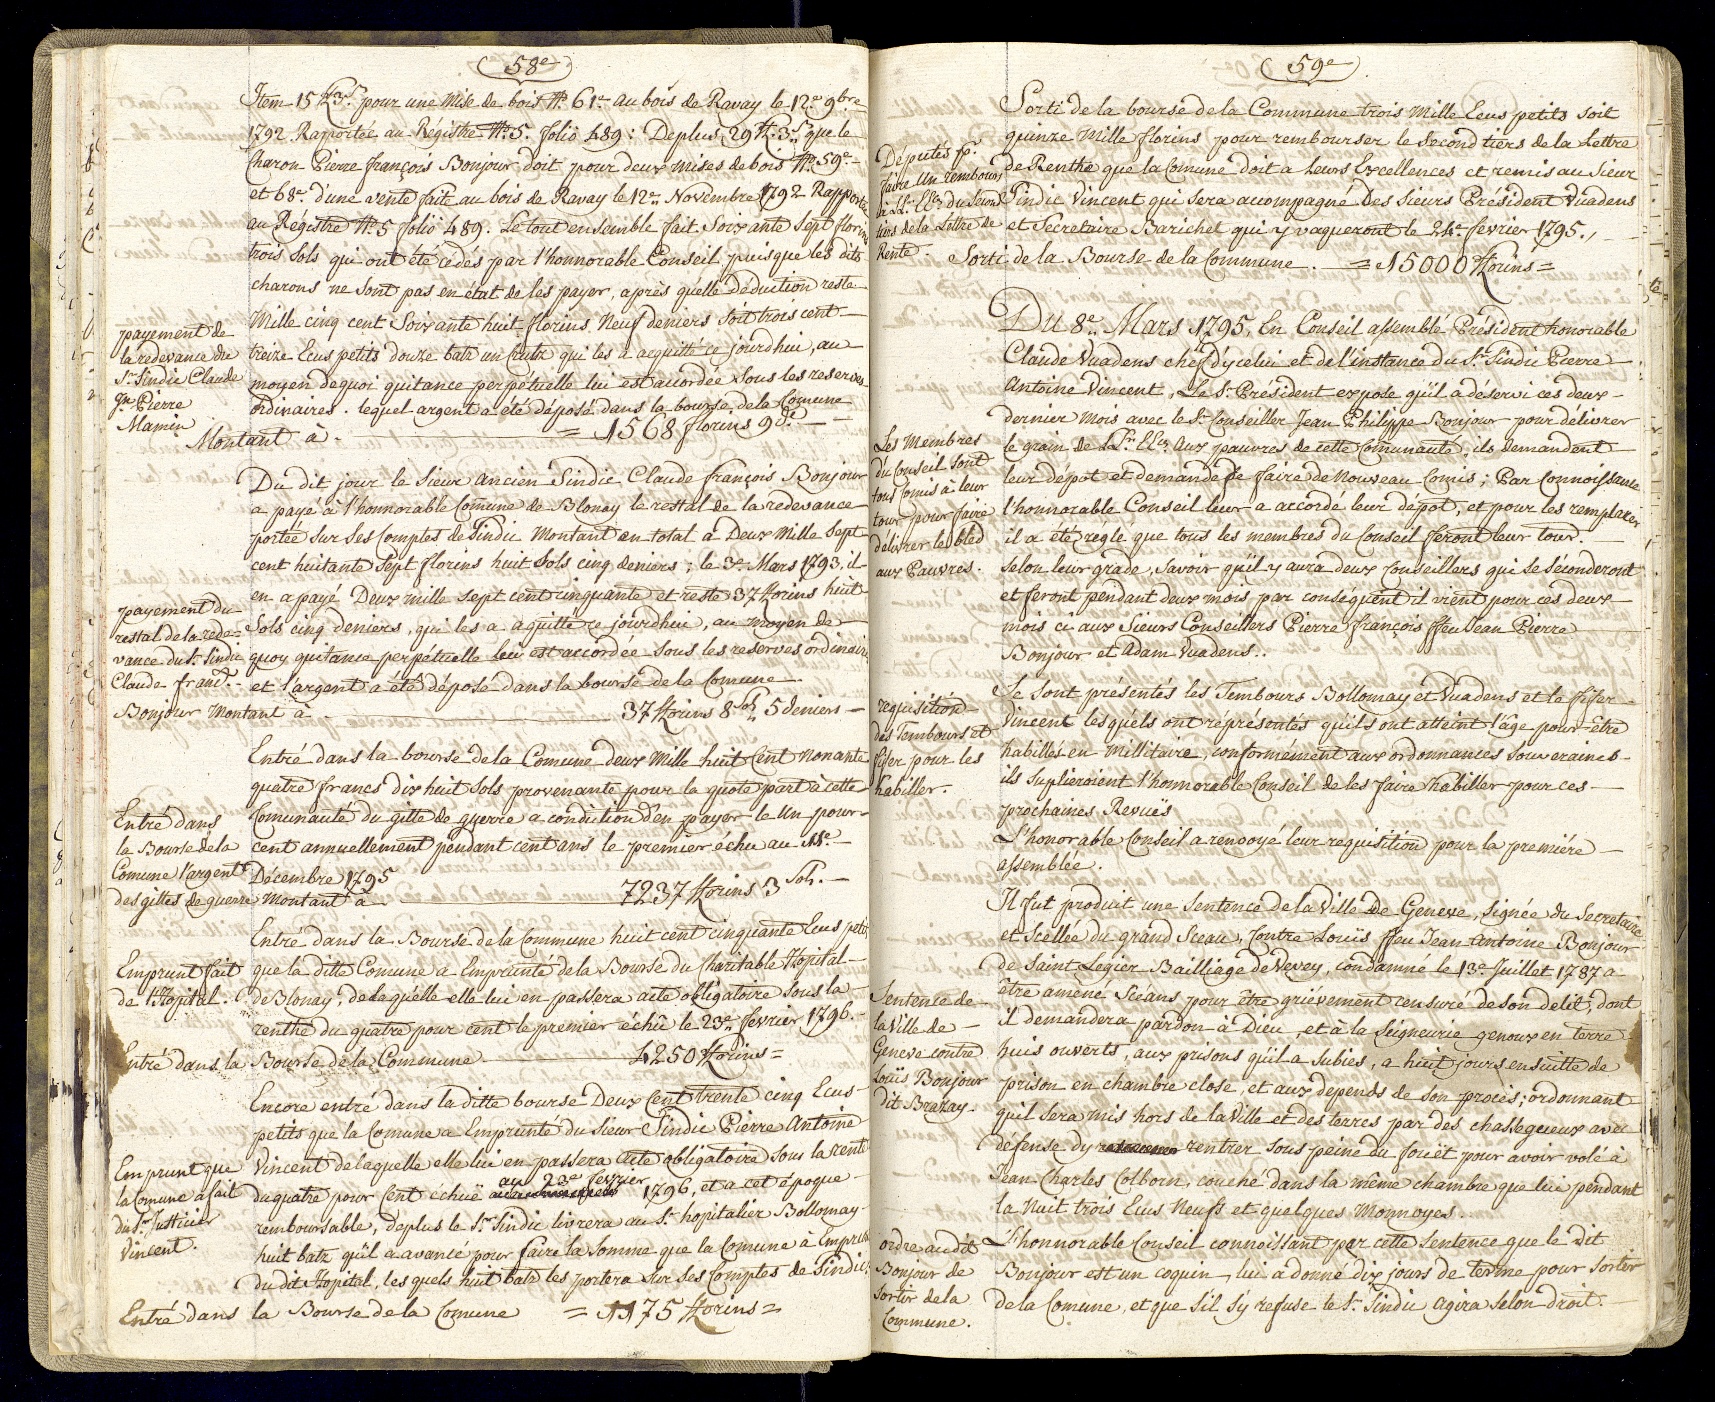 58e
Item 15 fl 3 s. pour une Mise de bois N.o 61e au bois de Ravay le 12.e 9bre
1792 Rapportée au Régistre N.o 5. folio 489: Deplus 29 fl. 3 s. que le
Charon Pierre françois Bonjour doit pour deux Mises de bois N.o 59e
et 68e d'une vente faite au bois de Ravay le 12e Novembre 1792 Rapportée
au Régistre N.o 5 folio 489. Le tout ensemble fait Soixante Sept florins
trois Sols qui ont été cédés par l'honnorable Conseil puisque les dits
charons ne Sont pas en état de les payer, après quelle déduction reste
Mille cinq cent Soixante huit florins Neuf deniers Soit trois cent
treize Ecus petits douze batz un Crutz qui les a acquitté ce jourdhui, au
moyen dequoi quitance perpétuelle lui est accordée Sous les reserves
ordinaires. lequel argent a été déposé dans la bourse de la Comune
payement de
la redevance du
Sr. Sindic Claude
fn. Pierre
Mamin
Montant à = 1568 florins 9 d.
Du dit jour le Sieur ancien Sindic Claude françois Bonjour
a payé à l'honnorable Comune de Blonay le restal de la redevance
portée Sur Ses Comptes de Sindic Montant en total à Deux Mille Sept
cent huitante Sept florins huit Sols cinq deniers; le 3e Mars 1793, il
en a payé Deux mille Sept cent cinquante et reste 37 florins huit
Sols cinq deniers, qui les a aquitté ce jourdhui, au moyen de
quoy quitance perpétuelle lui est accordée Sous les reserves ordinaires
et l'argent a été déposé dans la bourse de la Comune
payement du
restal de la rede=
vance du Sr. Sindic
Claude franç.
Bonjour Montant à 37 florins 8 Sols 5 deniers
Entré dans la bourse de la Comune deux Mille huit Cent Nonante
quatre francs dix huit Sols provenante pour la quote part à cette
Comunauté du gitte de guerre a condition d'en payer le Un pour
cent annuellement pendant cent ans le premier échu au 11e
Décembre 1795
Entré dans
la Bourse de la
Comune l'argent
des gittes de guerre Montant à 7237 florins 3 Sols.
Entré dans la Bourse de la Commune huit cent cinquante Ecus petits
que la ditte Comune a Emprunté de la Bourse du Charitable Hopital
de Blonay, de laquelle elle lui en passera acte obligatoire Sous la
renthe du quatre pour cent le premier échû le 23e fevrier 1796.
Emprunt fait
de l'Hopital.
Entré dans la Bourse de la Commune 4250 florins =
Encore entré dans la ditte bourse Deux Cent trente cinq Ecus
petits que la Comune a Emprunté du Sieur Sindic Pierre Antoine
Vincent de laquelle elle lui en passera acte obligatoire Sous la rente
au 23e fevrier
du quatre pour Cent échuë 1796, et a cet époque
remboursable, deplus le Sr. Sindic livrera au Sr. hopitalier Bollomay
huit batz qu'il a avancé pour faire la Somme que la Comune à Emprunté
du dit Hopital, les quels huit batz les portera Sur Ses Comptes de Sindic.
Emprunt que
la Comune a fait
du Sr. Justicier
Vincent.
Entré dans la Bourse de la Comune = 1175 florins =
59e
Sorti de la bourse de la Commune trois Mille Ecus petits Soit
quinze Mille florins pour rembourser le Second tiers de la Lettre
de Renthe que la Comune doit a Leurs Excellences et remis au Sieur
Sindic Vincent qui Sera accompagné Des Sieurs Président Vuadens
et Secretaire Barichet qui y vaqueront le 24e fevrier 1795.
Députés pr.
faire Un rembours
à LL. EEes du Second
tiers de la Lettre de
Rente.
Sorti de la Bourse de la Commune. = 15000 florins =
Du 8e Mars 1795, En Conseil assemblé Président honorable
Claude Vuadens chef d'ycelui et de l'instance du Sr. Sindic Pierre
Antoine Vincent, Le Sr. Président expose qu'il a déservi ces deux
dernier Mois avec le Sr. Conseiller Jean Philippe Bonjour pour délivrer
le grain de LLrs. EEes. aux pauvres de cette Comunauté, ils demandent
leur dépot et demande de faire de Nouveau Comis; Par Connoissance
l'honnorable Conseil leur a accordé leur dépot, et pour les remplacer
il a été réglé que tous les membres du Conseil feront leur tour.
Selon leur grade, Savoir qu'il y aura deux Conseillers qui se séconderont
et feront pendant deux mois par consequent il vient pour ces deux
mois ci aux Sieurs Conseillers Pierre françois ffeu Jean Pierre
Bonjour et Adam Vuadens.
Les Membres
du Conseil Sont
tous Comis à leur
tour pour faire
délivrer le bled
aux Pauvres.
Se Sont présentés les Tembours Bollomay et Vuadens et le fifer
Vincent lesquels ont représentés qu'ils ont atteint l'âge pour être
habillés en Millitaire, conformément aux ordonnances Souveraines
ils Suplieroient l'honnorable Conseil de les faire habiller pour ces
prochaines Revuës
requisition
des Tembours et
fifer pour les
habiller.
L'honorable Conseil a renvoyé leur requisition pour la première
assemblée.
Il fut produit une Sentence de la Ville de Geneve, Signée du Secretaire
et Scellée du grand Sceau, Contre Louïs ffeu Jean Antoine Bonjour
de Saint Légier Bailliage de Vevey, condamné le 13e Juillet 1787 a
être améné Scéans pour être grièvement censuré de son delit, dont
il demandera pardon à Dieu et à la Seigneurie genoux en terre
huis ouverts, aux prisons qu'il a Subies, a huit jours ensuitte de
prison en chambre close, et aux depends de Son procès; ordonnant
qu'il Sera mis hors de la Ville et des terres par des chassegueux avec
défense d'y rentrer Sous peine du fouët pour avoir volé à
Jean Charles Colborn, couché dans la même chambre que lui pendant
la Nuit trois Ecus Neufs et quelques Monnoyes.
Sentence de
la Ville de
Geneve contre
Louïs Bonjour
dit Brazay.
L'honnorable Conseil connoissant par cette Sentence que le Dit
Bonjour est un coquin, lui a donné dix jours de terme pour Sortir
de la Comune, et que S'il S'y refuse le Sr. Sindic agira Selon droit.
ordre au dit
Bonjour de
Sortir de la
Commune.